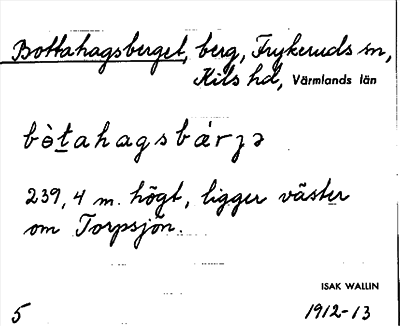 Bottahagsberget, berg, Frykeruds sn,
Kils hd, Värmlands län
bòtahagsbárʒə
239,4 m. högt, ligger väster
om Torpsjön.
ISAK WALLIN
5 1912-13